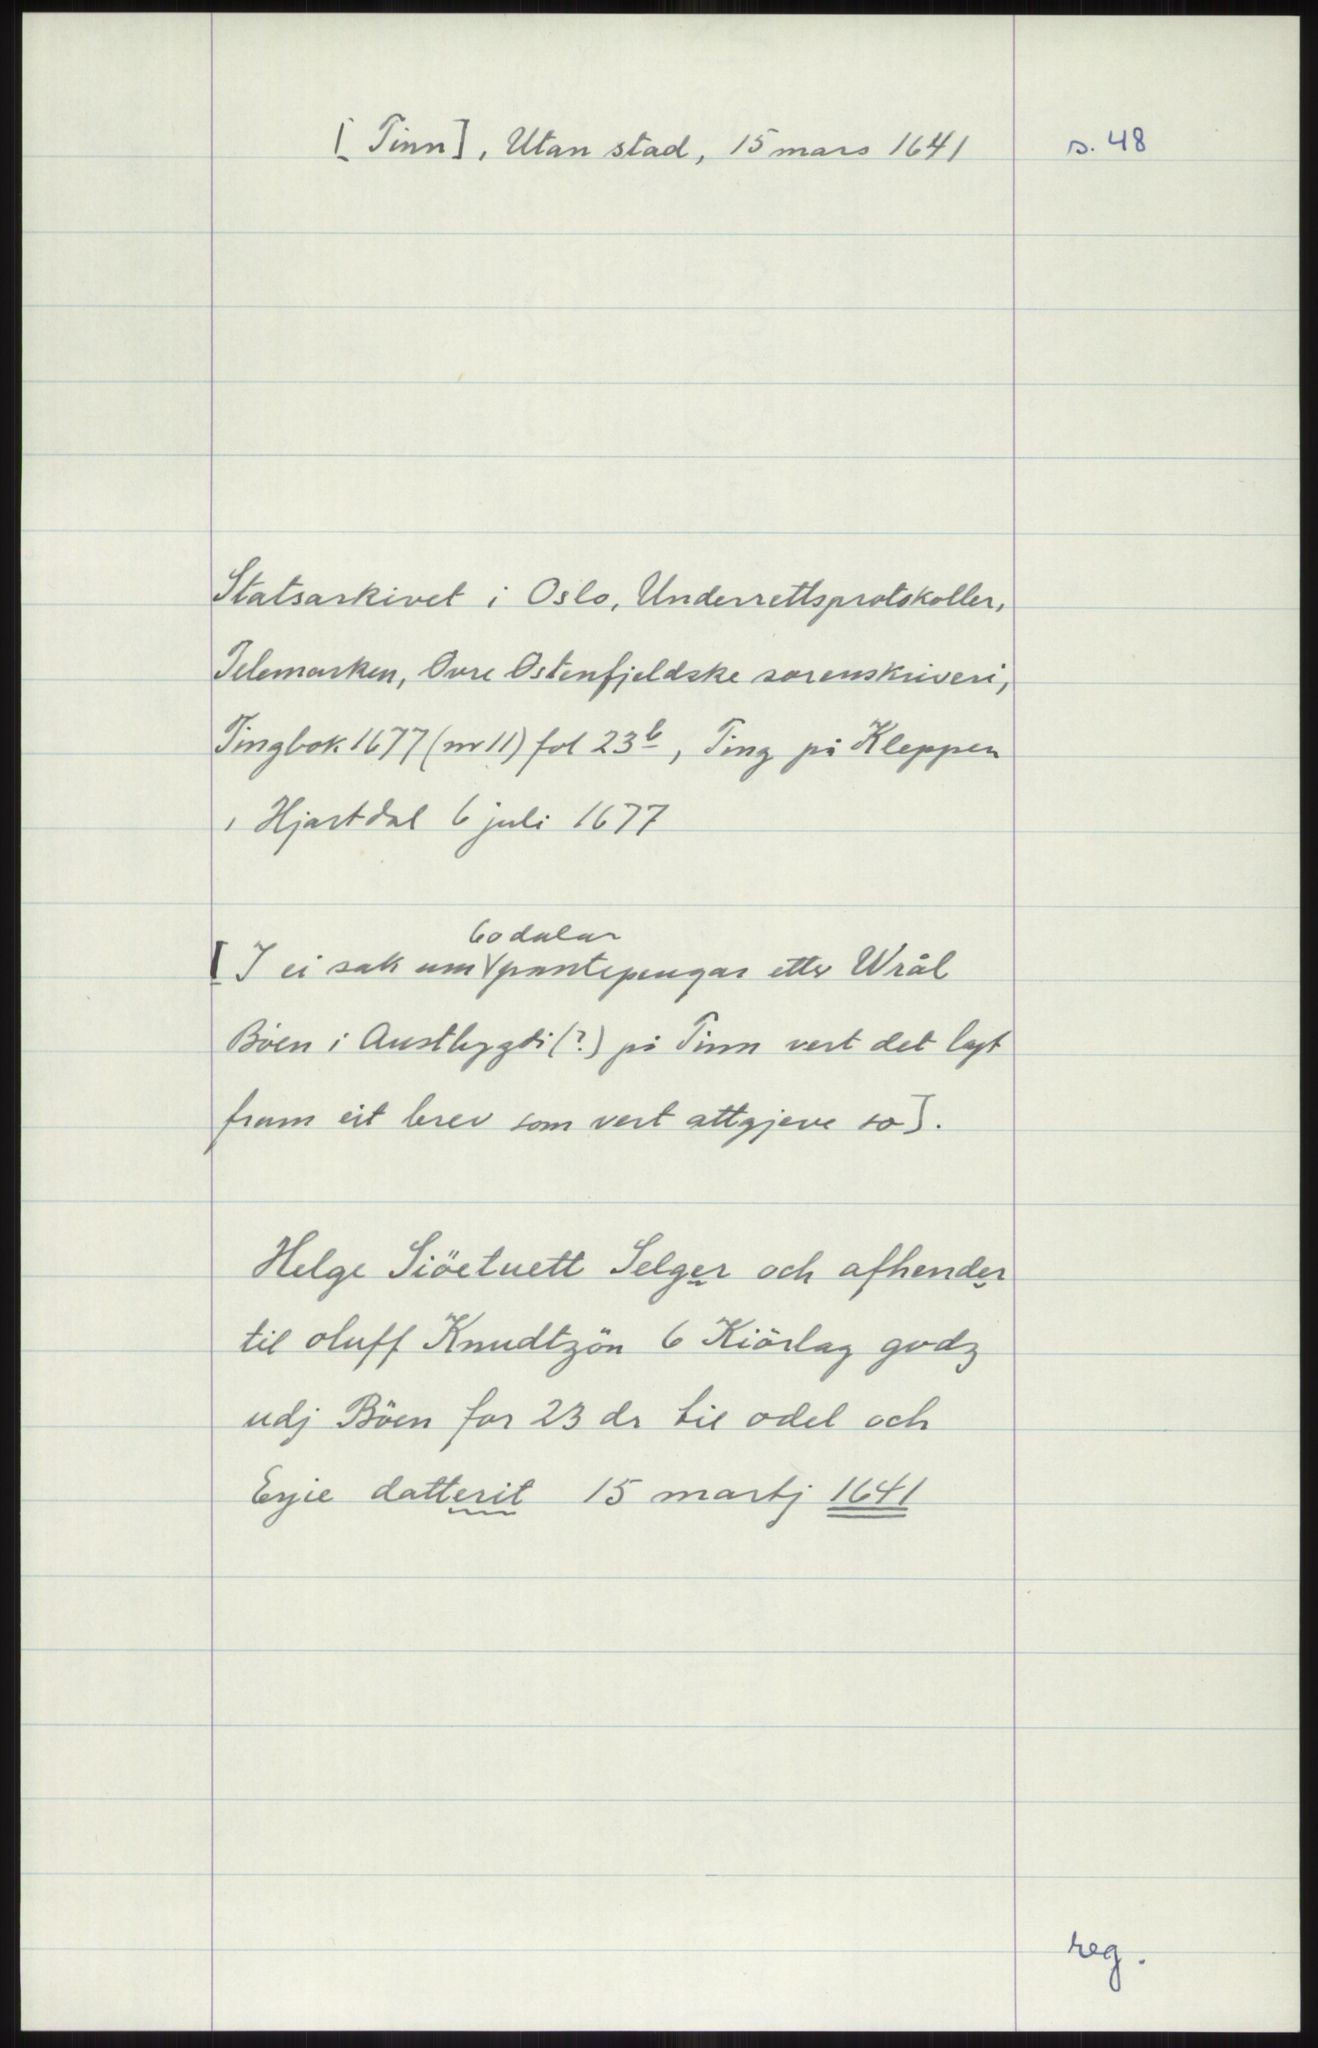 [Tinn], Utan stad, 15 mars 1641
s. 48
Statsarkivet i Oslo, Underrettsprotokoller,
Telemarken, Øvre Østenfjeldske sorenskriveri,
Tingbok 1677 (nr 11) fol 23b, Ting på Kleppen
i Hjartdal 6 juli 1677
60 dalar
[I ei sak um pantepengar etter Wrål
Böen i Austbygdi (?) på Tinn vert det lagt
fram eit brev som vert attgjeve so].
Helge Siöetuett Selger och afhender
til oluff Knudtzön 6 Kiörlag godz
udj Böen for 23 dr til odel och
Eyie datterit 15 martj 1641
reg.